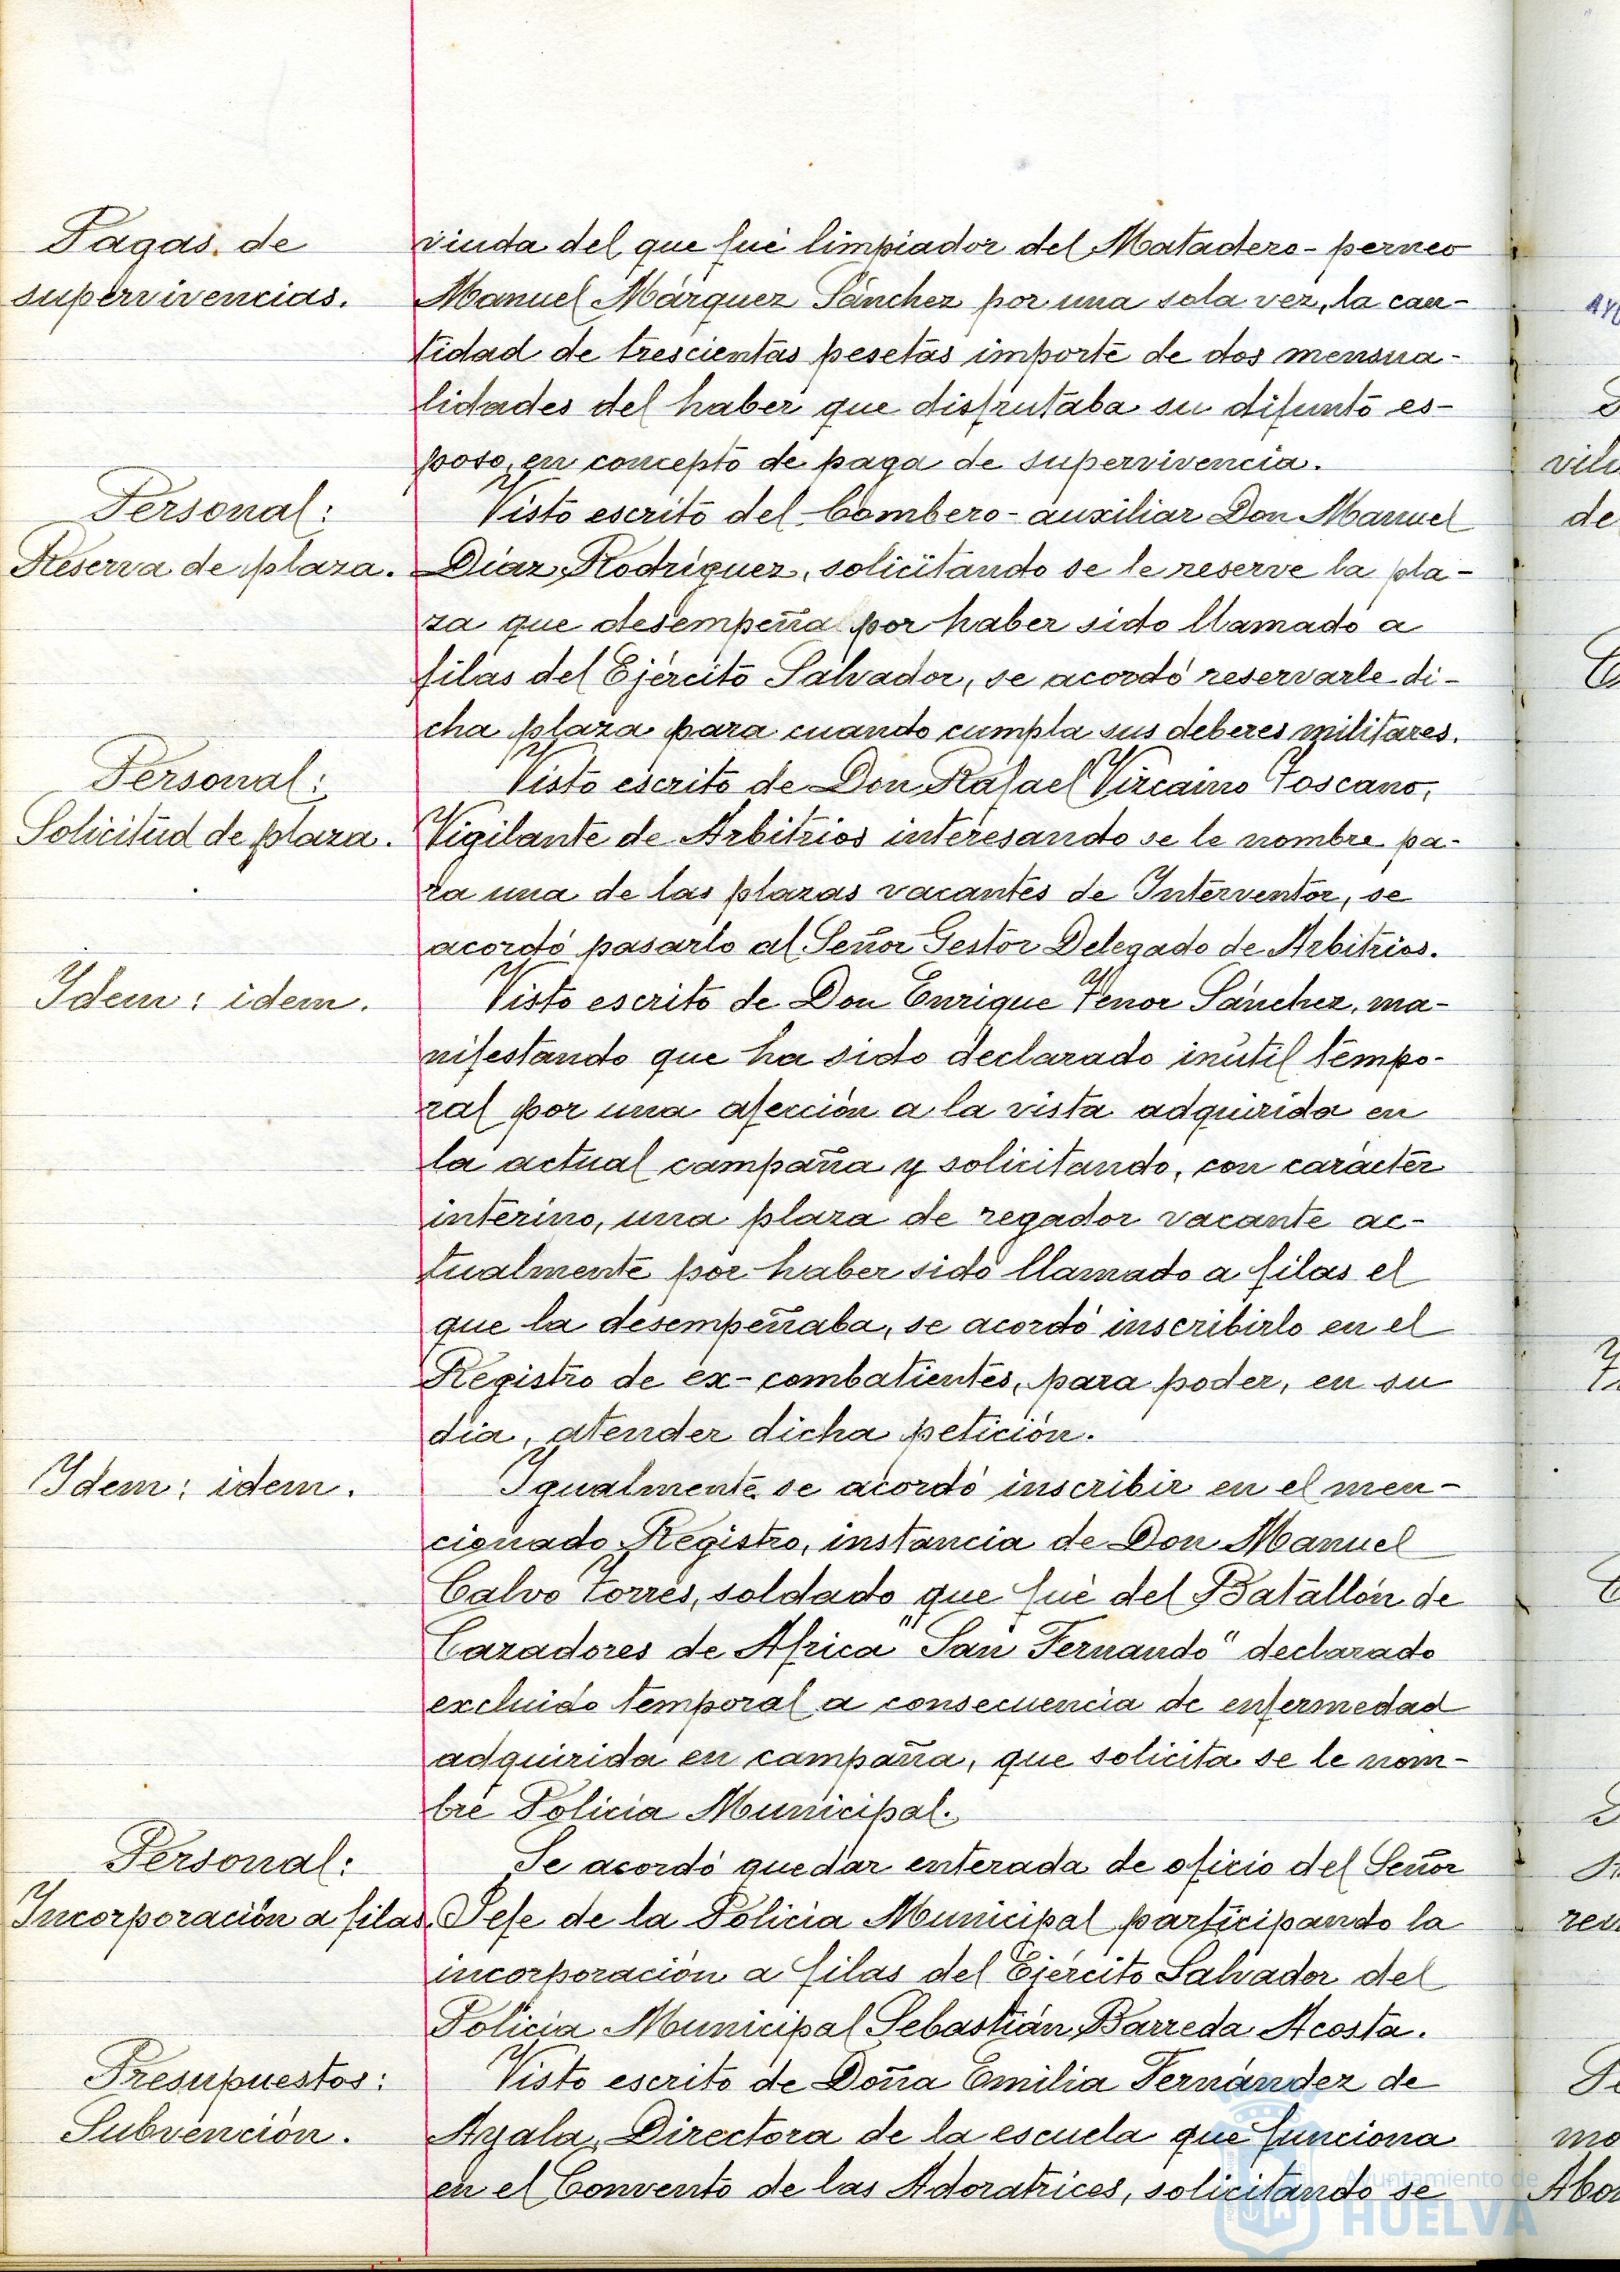 Pagas de
supervivencias.
viuda del que fué limpiador del Matadero-perneo
Manuel Márquez Sánchez por una sola vez, la can-
tidad de trescientas pesetas importe de dos mensua-
lidades del haber que disfrutaba su difunto es-
poso, en concepto de paga de supervivencia.
Personal:
Reserva de plaza.
Visto escrito del bombero-auxiliar Don Manuel
Díaz Rodríguez, solicitando se le reserve la pla-
za que desempeña por haber sido llamado a
filas del Ejército Salvador, se acordó reservarle di-
cha plaza para cuando cumpla sus deberes militares.
Personal:
Solicitud de plaza.
Visto escrito de Don Rafael Vizcaino Toscano,
Vigilante de Arbitrios interesando se le nombre pa-
ra una de las plazas vacantes de Interventor, se
acordó pasarlo al Señor Gestor Delegado de Arbitrios.
Idem: idem.
Visto escrito de Don Enrique Tenor Sánchez, ma-
nifestando que ha sido declarado inútil tempo-
ral por una afección a la vista adquirida en
la actual campaña y solicitando, con carácter
interino, una plaza de regador vacante ac-
tualmente por haber sido llamado a filas el
que la desempeñaba, se acordó inscribirlo en el
Registro de ex-combatientes, para poder, en su
día, atender dicha petición.
Idem: idem.
Igualmente se acordó inscribir en el men-
cionado Registro, instancia de Don Manuel
Calvo Torres, soldado que fué del Batallón de
Cazadores de Africa "San Fernando" declarado
excluido temporal a consecuencia de enfermedad
adquirida en campaña, que solicita se le nom-
bre Policía Municipal.
Personal:
Incorporación a filas.
Se acordó quedar enterada de oficio del Señor
Jefe de la Policía Municipal participando la
incorporación a filas del Ejército Salvador del
Policía Municipal Sebastián Barreda Acosta.
Presupuestos:
Subvención.
Visto escrito de Doña Emilia Fernández de
Ayala, Directora de la escuela que funciona
en el Convento de las Adoratrices, solicitando se
Ayuntamiento de
HUELVA
vili
de
mo